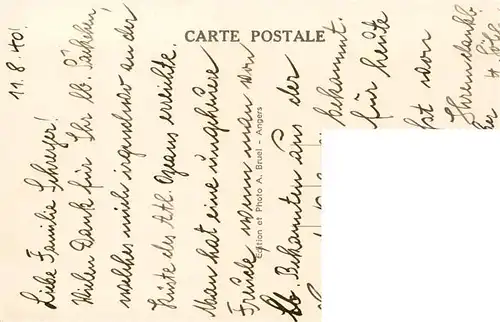 CARTE POSTALE
11.8.40!
Liebe Familie Schreyer!
Vielen Dank für Ihr lb. Päckchen,
welches mich irgendwo an der
Küste des Atl. Ozeans erreichte.
Man hat eine ungeheure
Freude wenn man von
lb. Bekannten aus der
bekannt.
für heute
von
Ihrem dankb.
Edition et Photo A. Bruel - Angers